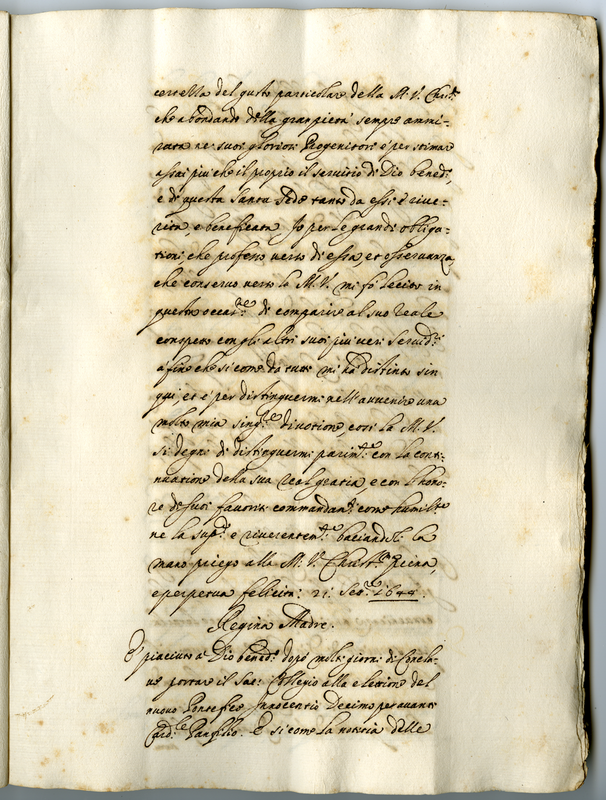 certezza del gusto particolare della M. V. Christ.
che abondando della gran pietà sempre ammi-
rata ne suoi gloriosi Progenitori è per stimare
assai più che il proprio il servitio di Dio bened.,
e di questa Santa Sede tanto da essi rive-
rita, e beneficata. Io per le grandi obliga-
tioni, che professo verso di essa, et osservanza,
che conservo verso la M. V. mi fo lecito in
questa occar.ne di comparire al suo reale
cospetto con gli altri suoi più veri Servid.i
a fine che si come da tutti mi ha distinto sin
qui, et è per distinguermi nell'avvenire una
molto mia sing.re divotione, così la M. V.
si degni di distinguermi parim.te con la conti-
nuatione della sua real gratia e con l'hono-
re de suoi favoriti commandam.ti come humilm.te
ne la sup.co e riverentem.te baciandole la
mano priego alla M. V. Christ.ma piena,
e perpetua felicità: 21: Sett.re 1644.
Regina Madre.
È piaciuto a Dio bened.o dopo molti giorni di Concla-
ve portare il Sac: Collegio alla elettione del
nuovo Pontefice Innocentio Decimo per avanti
Card.le Panfilio. E si come la notitia delle